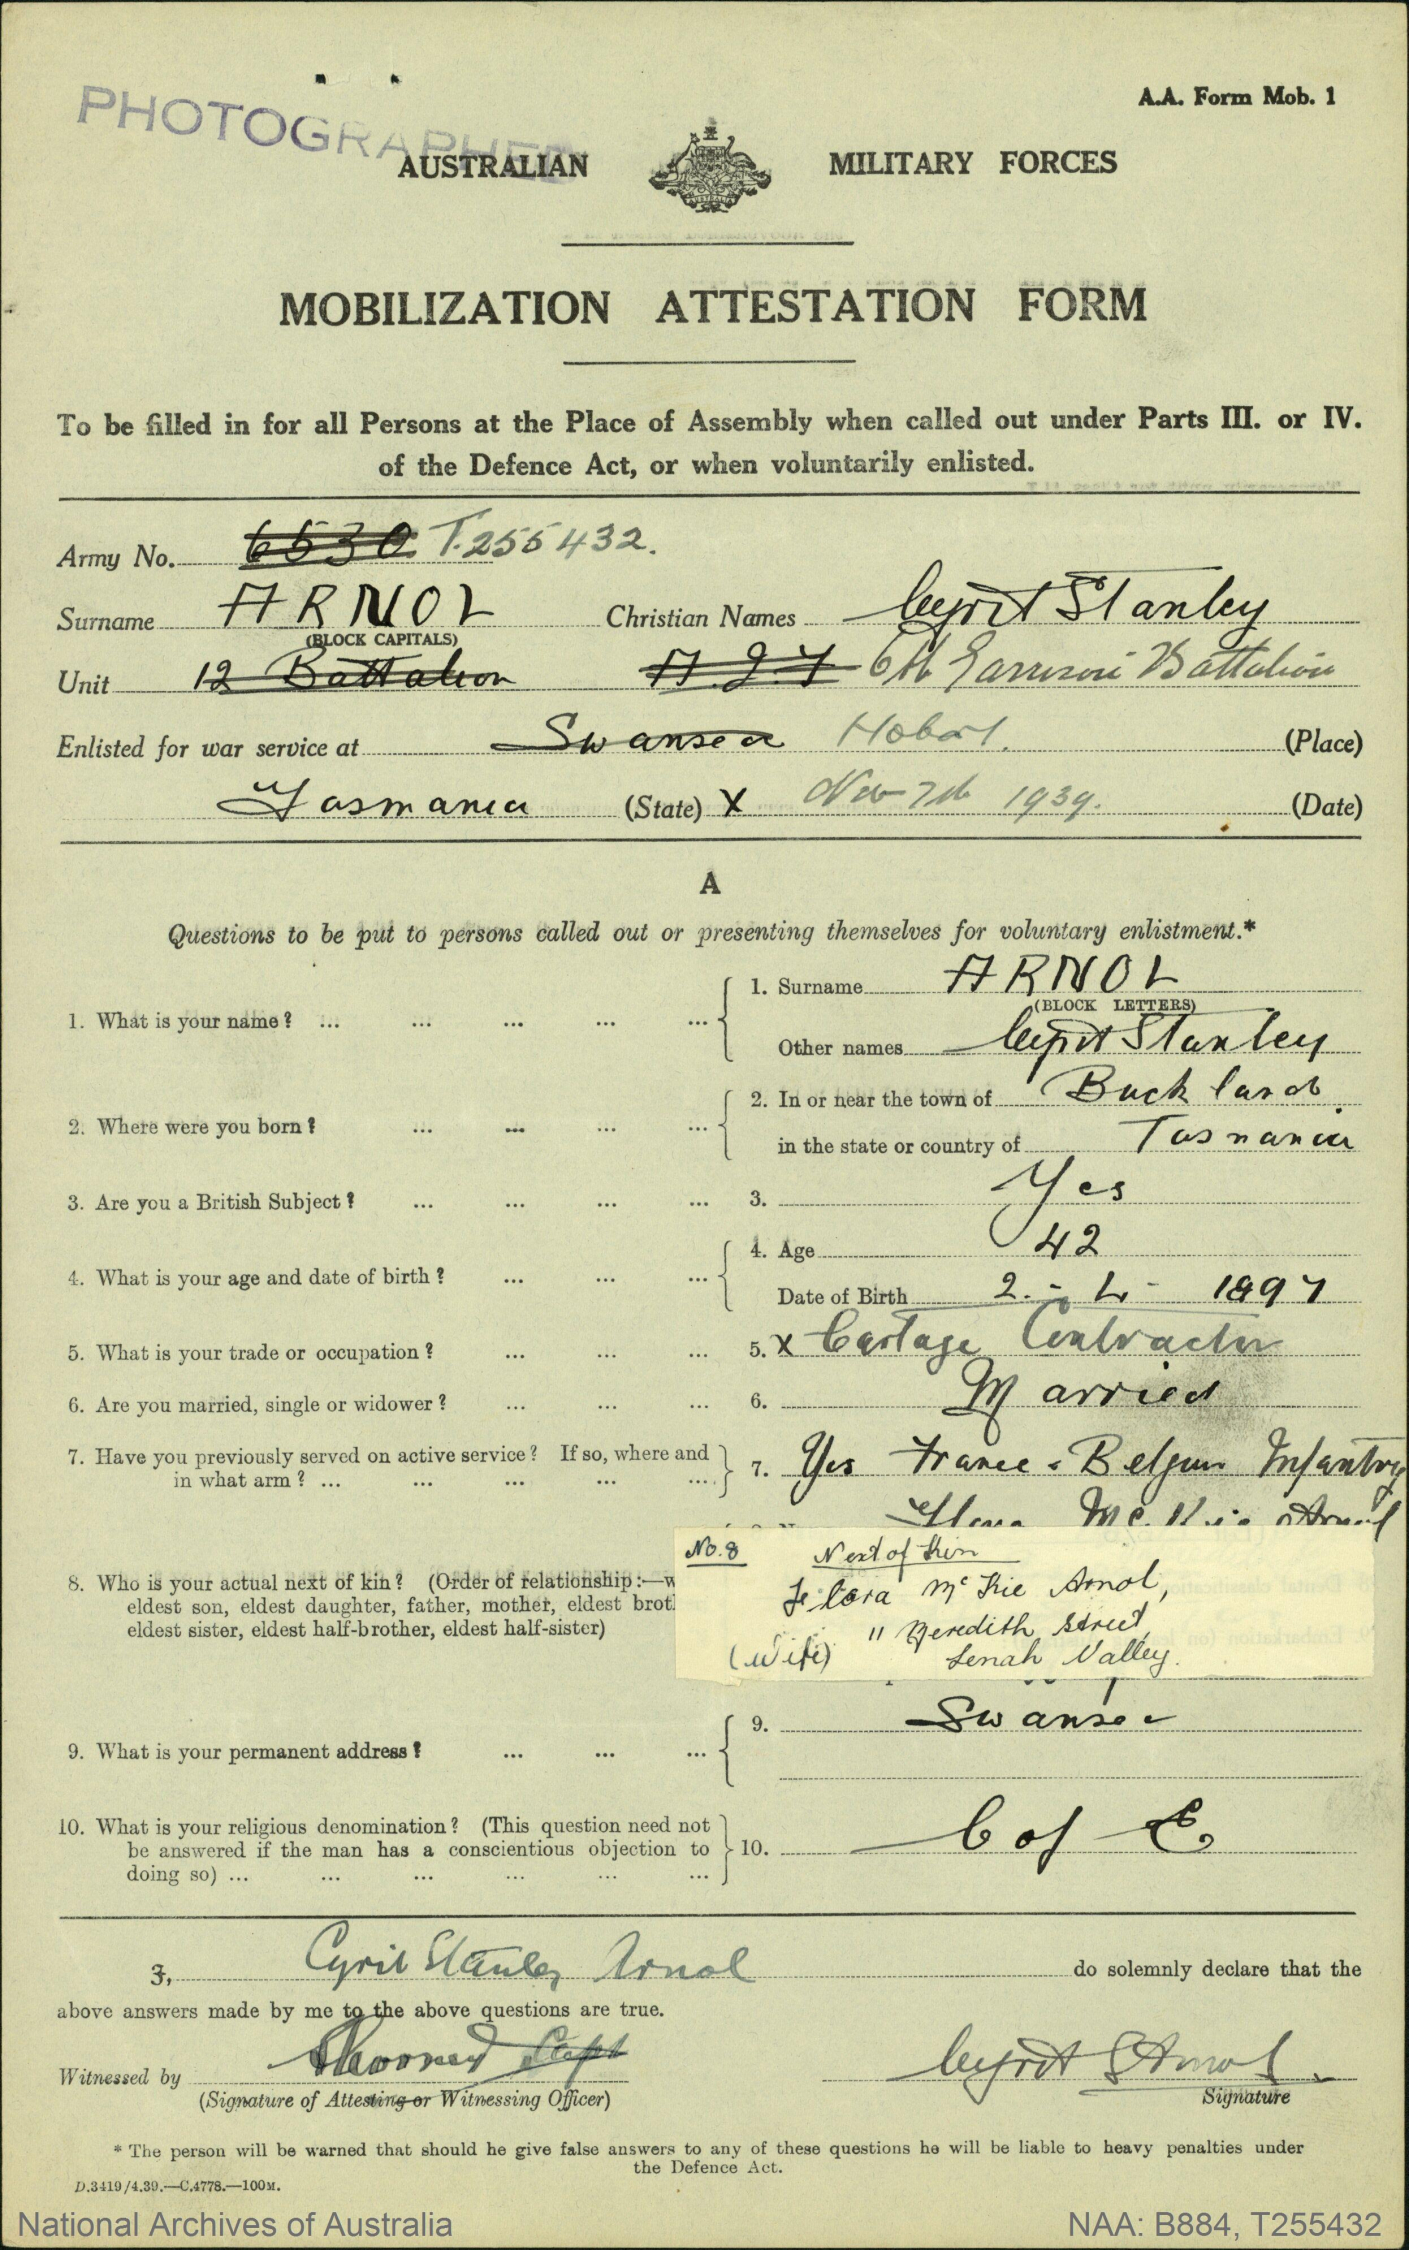 PHOTOGRAPHED
A.A. Form Mob. 1
AUSTRALIAN MILITARY FORCES
MOBILIZATION ATTESTATION FORM
To be filled in for all Persons at the Place of Assembly when called out under Parts III. or IV.
of the Defence Act, or when voluntarily enlisted.
Army No. 6530 T.255432.
Surname ARNOL Christian Names Cyril Stanley
(BLOCK CAPITALS)
Unit 12 Battalion 6th Garrison Battalion
Enlisted for war service at Swansea Hobart. (Place)
Tasmania (State) X Nov 7th 1939. (Date)
A
Questions to be put to persons called out or presenting themselves for voluntary enlistment.*
1. What is your name? ... ... ... ... ...
1. Surname ARNOL
(BLOCK LETTERS)
Other names Cyril Stanley
2. Where were you born? ... ... ... ...
2. In or near the town of Buckland
in the state or country of Tasmania
3. Are you a British Subject? ... ... ... ... 3. Yes
4. What is your age and date of birth? ... ... ...
4. Age 42
Date of Birth 2. - 4 - 1897
5. What is your trade or occupation? ... ... ... 5. X Cartage Contractor
6. Are you married, single or widower? ... ... ... 6. Married
7. Have you previously served on active service? If so, where and
in what arm? ... ... ... ... ...
7. Yes France - Belgium Infantry
Mc Kie Arnol
8. Who is your actual next of kin? (Order of relationship:—w
eldest son, eldest daughter, father, mother, eldest brot
eldest sister, eldest half-brother, eldest half-sister)
No. 8 Next of Kin
Mc Kie Arnol,
11 Meredith Street,
(Wife) Lenah Valley.
9. What is your permanent address? ... ... ...
9. Swansea
10. What is your religious denomination? (This question need not
be answered if the man has a conscientious objection to
doing so) ... ... ... ... ... ...
10. C of E
I, Cyril Stanley Arnol do solemnly declare that the
above answers made by me to the above questions are true.
Witnessed by Capt
Cyril S Arnol
(Signature of Attesting or Witnessing Officer)
Signature
* The person will be warned that should he give false answers to any of these questions he will be liable to heavy penalties under
the Defence Act.
D.3419/4.39.—C.4778.—100M.
National Archives of Australia NAA: B884, T255432